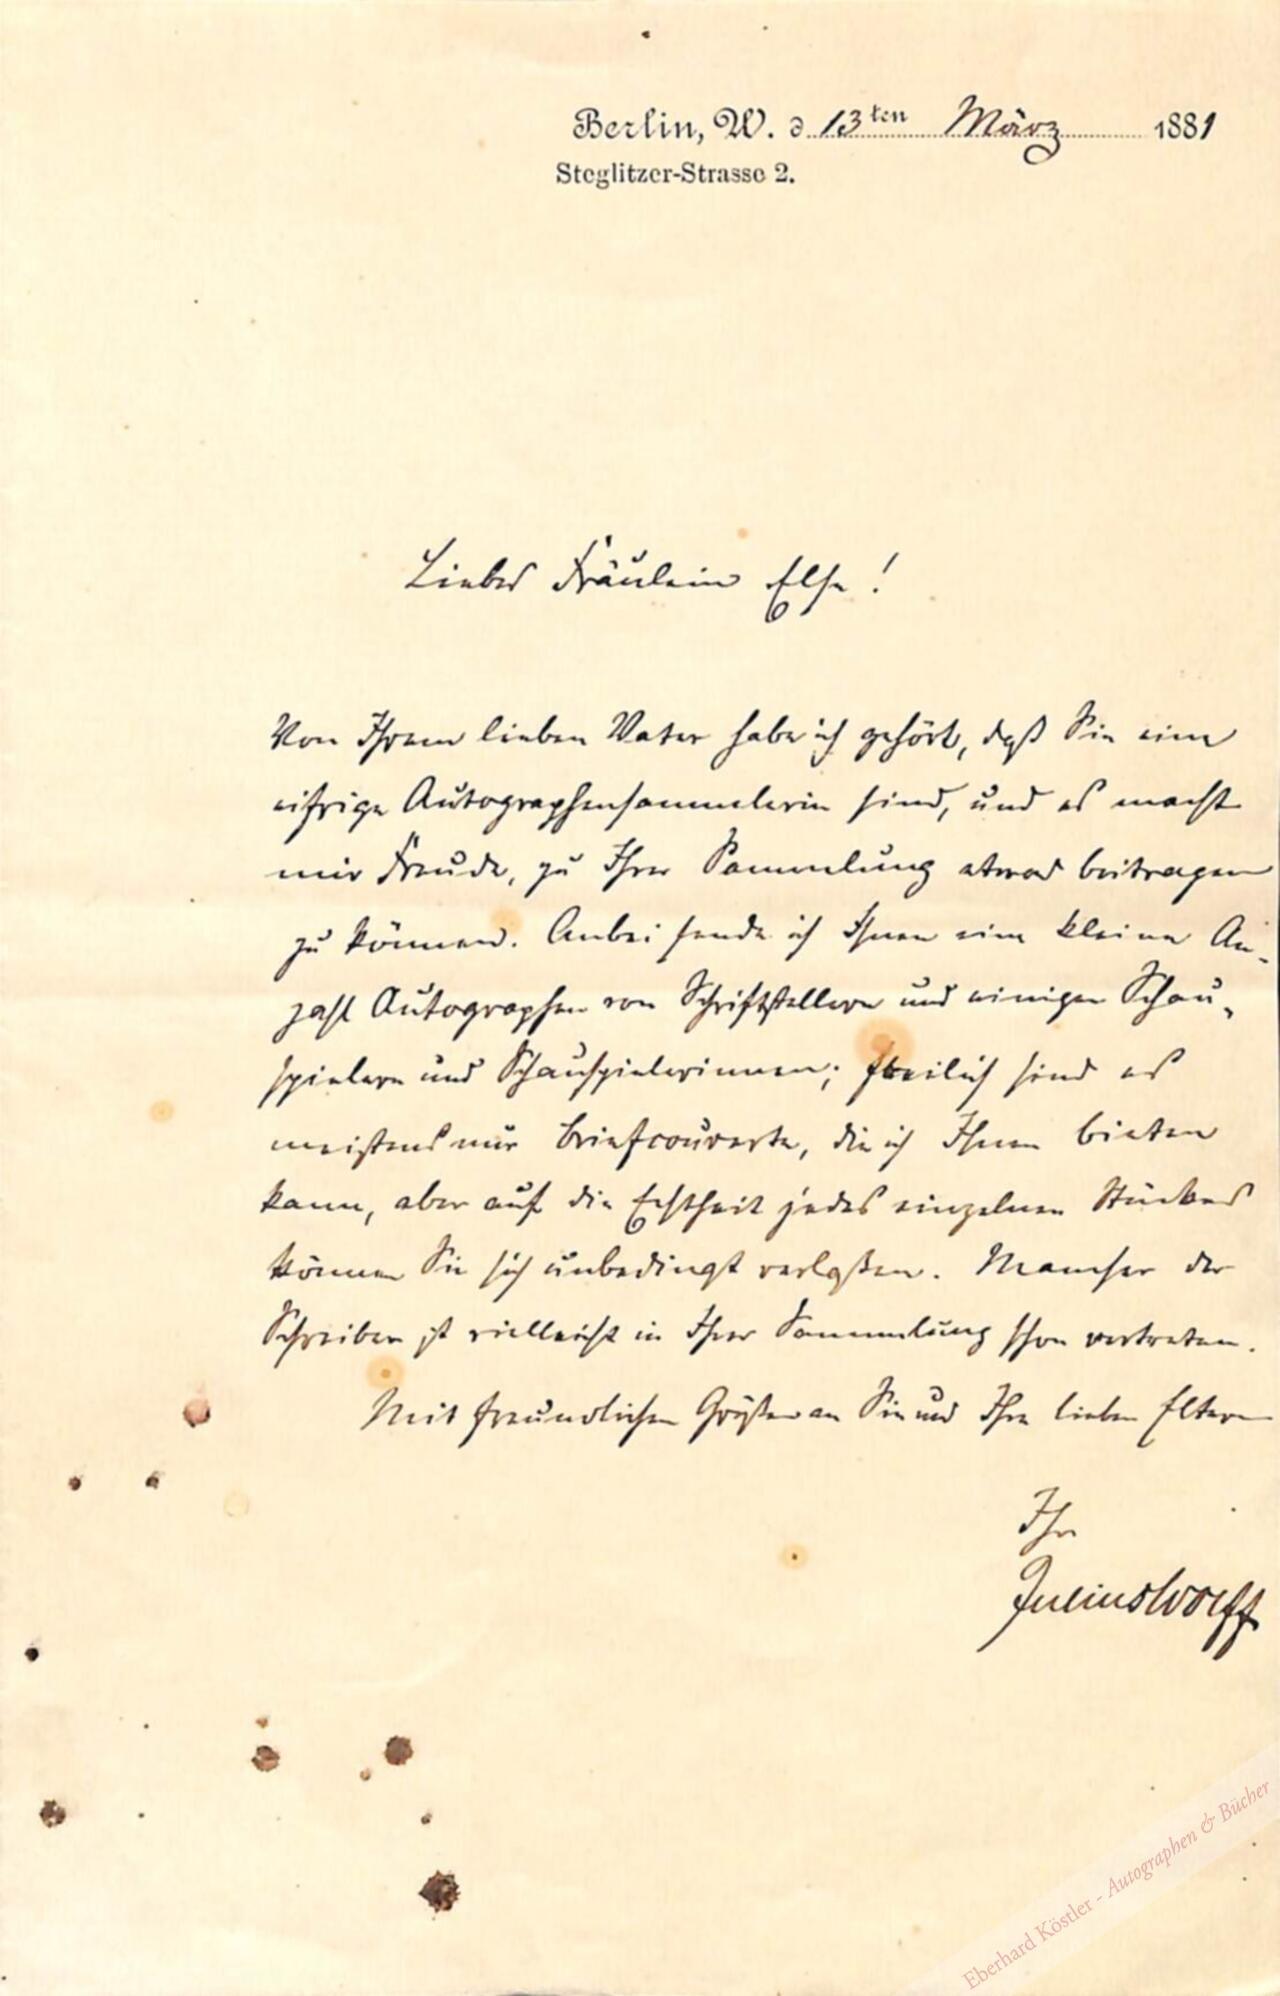 Berlin, W. d 13ten März 1881
Steglitzer-Strasse 2.
Liebes Fräulein Else!
Von Ihrem lieben Vater habe ich gehört, daß Sie eine
eifrige Autographensammlerin sind, und es macht
mir Freude, zu Ihrer Sammlung etwas beitragen
zu können. Anbei sende ich Ihnen eine kleine An-
zahl Autographen von Schriftstellern und einigen Schau-
spielern und Schauspielerinnen; freilich sind es
meistens nur Briefcouverte, die ich Ihnen bieten
kann, aber auf die Echtheit jedes einzelnen Stückes
können Sie sich unbedingt verlaßen. Mancher der
Schreiber ist vielleicht in Ihrer Sammlung schon vertreten.
Mit freundlichen Grüßen an Sie und Ihre lieben Eltern
Ihr
Julius Wolff
Eberhard Köstler - Autographen & Bücher